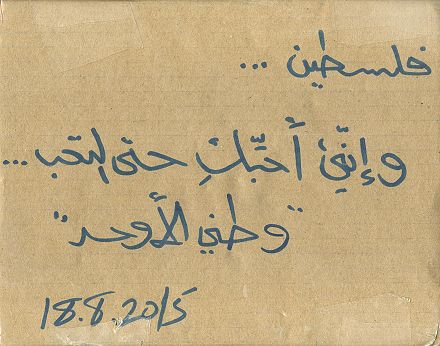 فلسطين ...
وإنّني أحبّكِ حتى التعب ...
"وطني الأوحد"
18.8.2015